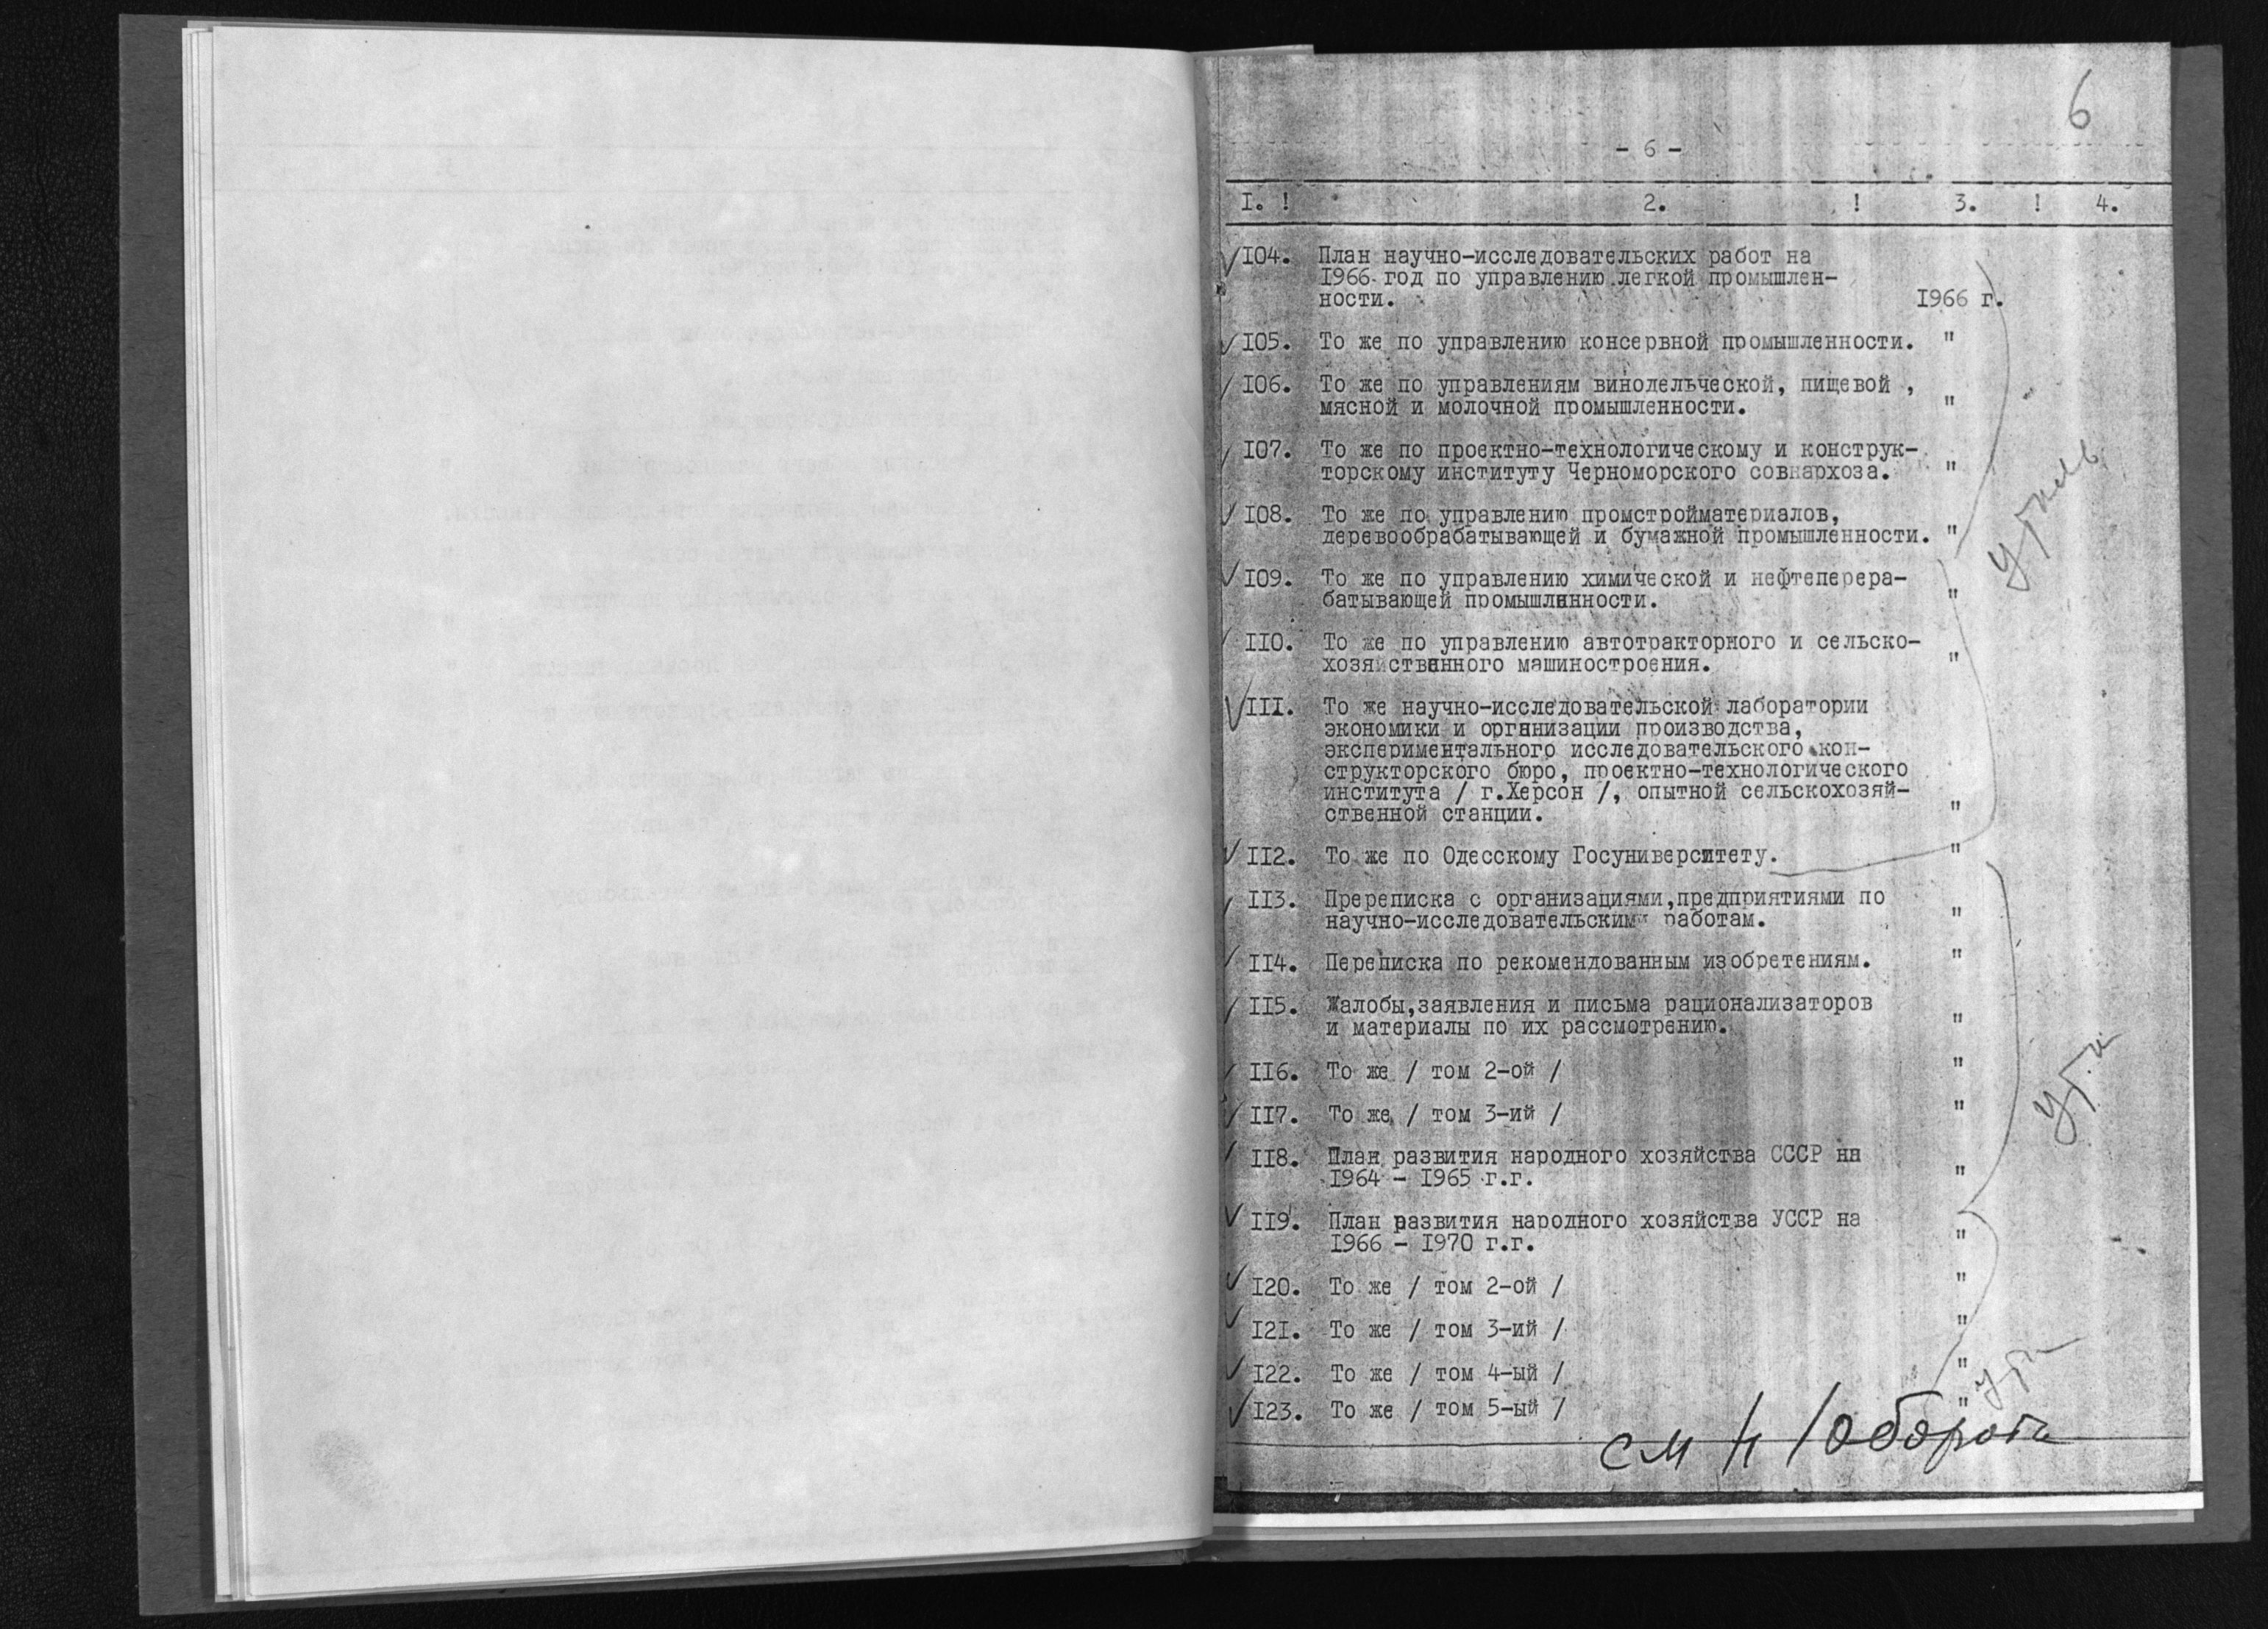 6
- 6 -
I. ! 2. ! 3. ! 4.
I04. План научно-исследовательских работ на
I966 год по управлению легкой промышлен-
ности. I966 г.
I05. То же по управлению консервной промышленности. "
I06. То же по управлениям винодельческой, пищевой ,
мясной и молочной промышленности. "
I07. То же по проектно-технологическому и конструк-
торскому институту Черноморского совнархоза. "
I08. То же по управлению промстройматериалов,
деревообрабатывающей и бумажной промышленности. "
I09. То же по управлению химической и нефтеперера-
батывающей промышленности. "
II0. То же по управлению автотракторного и сельско-
хозяйственного машиностроения. "
III. То же научно-исследовательской лаборатории
экономики и организации производства,
экспериментального исследовательского кон-
структорского бюро, проектно-технологического
института / г.Херсон /, опытной сельскохозяй-
ственной станции. "
II2. То же по Одесскому Госуниверситету. "
II3. Пререписка с организациями,предприятиями по
научно-исследовательским работам. "
II4. Переписка по рекомендованным изобретениям. "
II5. Жалобы,заявления и письма рационализаторов
и материалы по их рассмотрению. "
II6. То же / том 2-ой / "
II7. То же / том 3-ий / "
II8. План развития народного хозяйства СССР нн
I964 - I965 г.г. "
II9. План развития народного хозяйства УССР на
I966 - I970 г.г. "
I20. То же / том 2-ой / "
I2I. То же / том 3-ий / "
I22. То же / том 4-ый / "
I23. То же / том 5-ый / "
см н / обороте